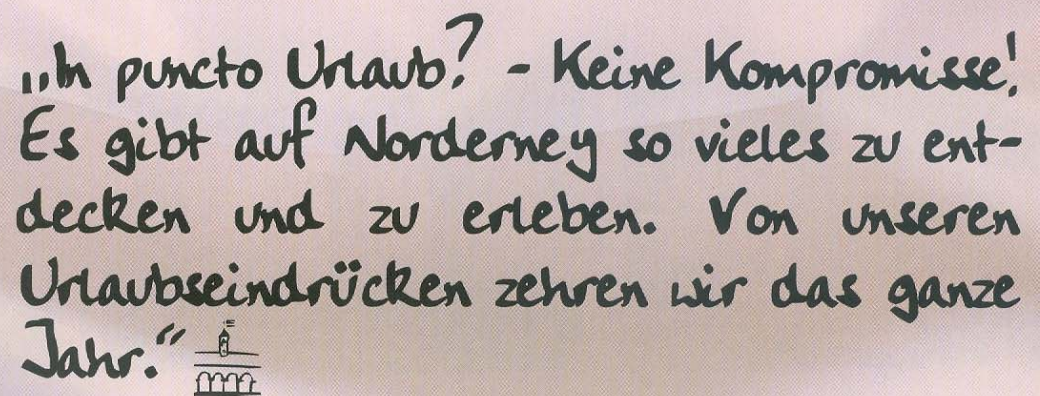 „In puncto Urlaub? - Keine Kompromisse!
Es gibt auf Norderney so vieles zu ent-
decken und zu erleben. Von unseren
Urlaubseindrücken zehren wir das ganze
Jahr.“